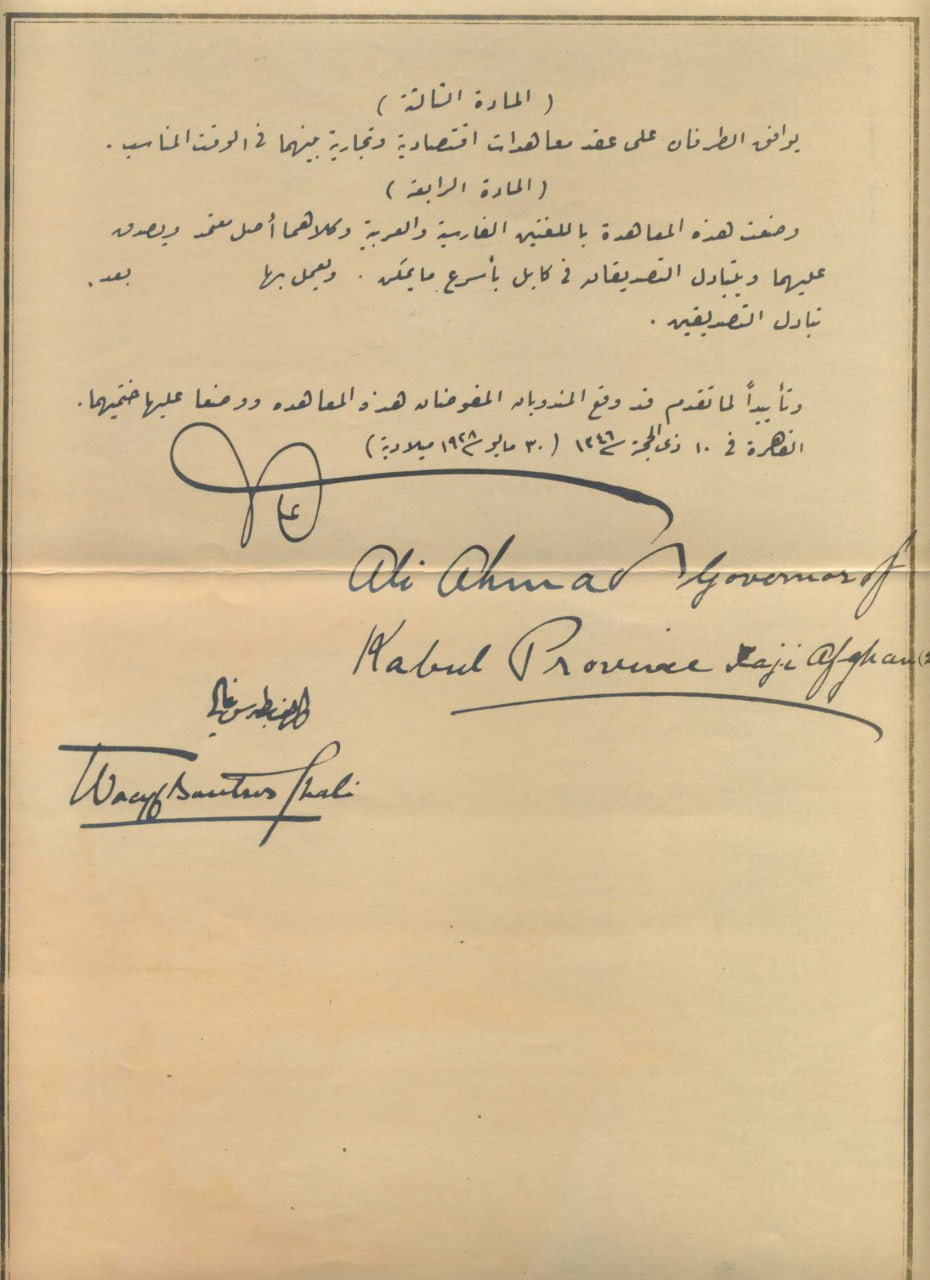 ( المادة الثالثة )
يوافق الطرفان على عقد معاهدات اقتصادية وتجارية بينهما فى الوقت المناسب .
( المادة الرابعة )
وضعت هذه المعاهدة باللغتين الفارسية والعربية وكلاهما أصل معتمد ويصدق
عليهما ويتبادل التصديقان فى كابل بأسرع ما يمكن . ويعمل بها بعد
تبادل التصديقين .
وتأييداً لما تقدم قد وقع المندوبان المفوضان هذه المعاهده ووضعا عليها ختميهما .
القاهرة فى ١٠ ذى الحجة سنة ١٣٤٦ ( ٣٠ مايو سنة ١٩٢٨ ميلادية )
Ali Ahmad Governor of
Kabul Province Afghan
واصف بطرس غالى
Wacyf Boutros Ghali